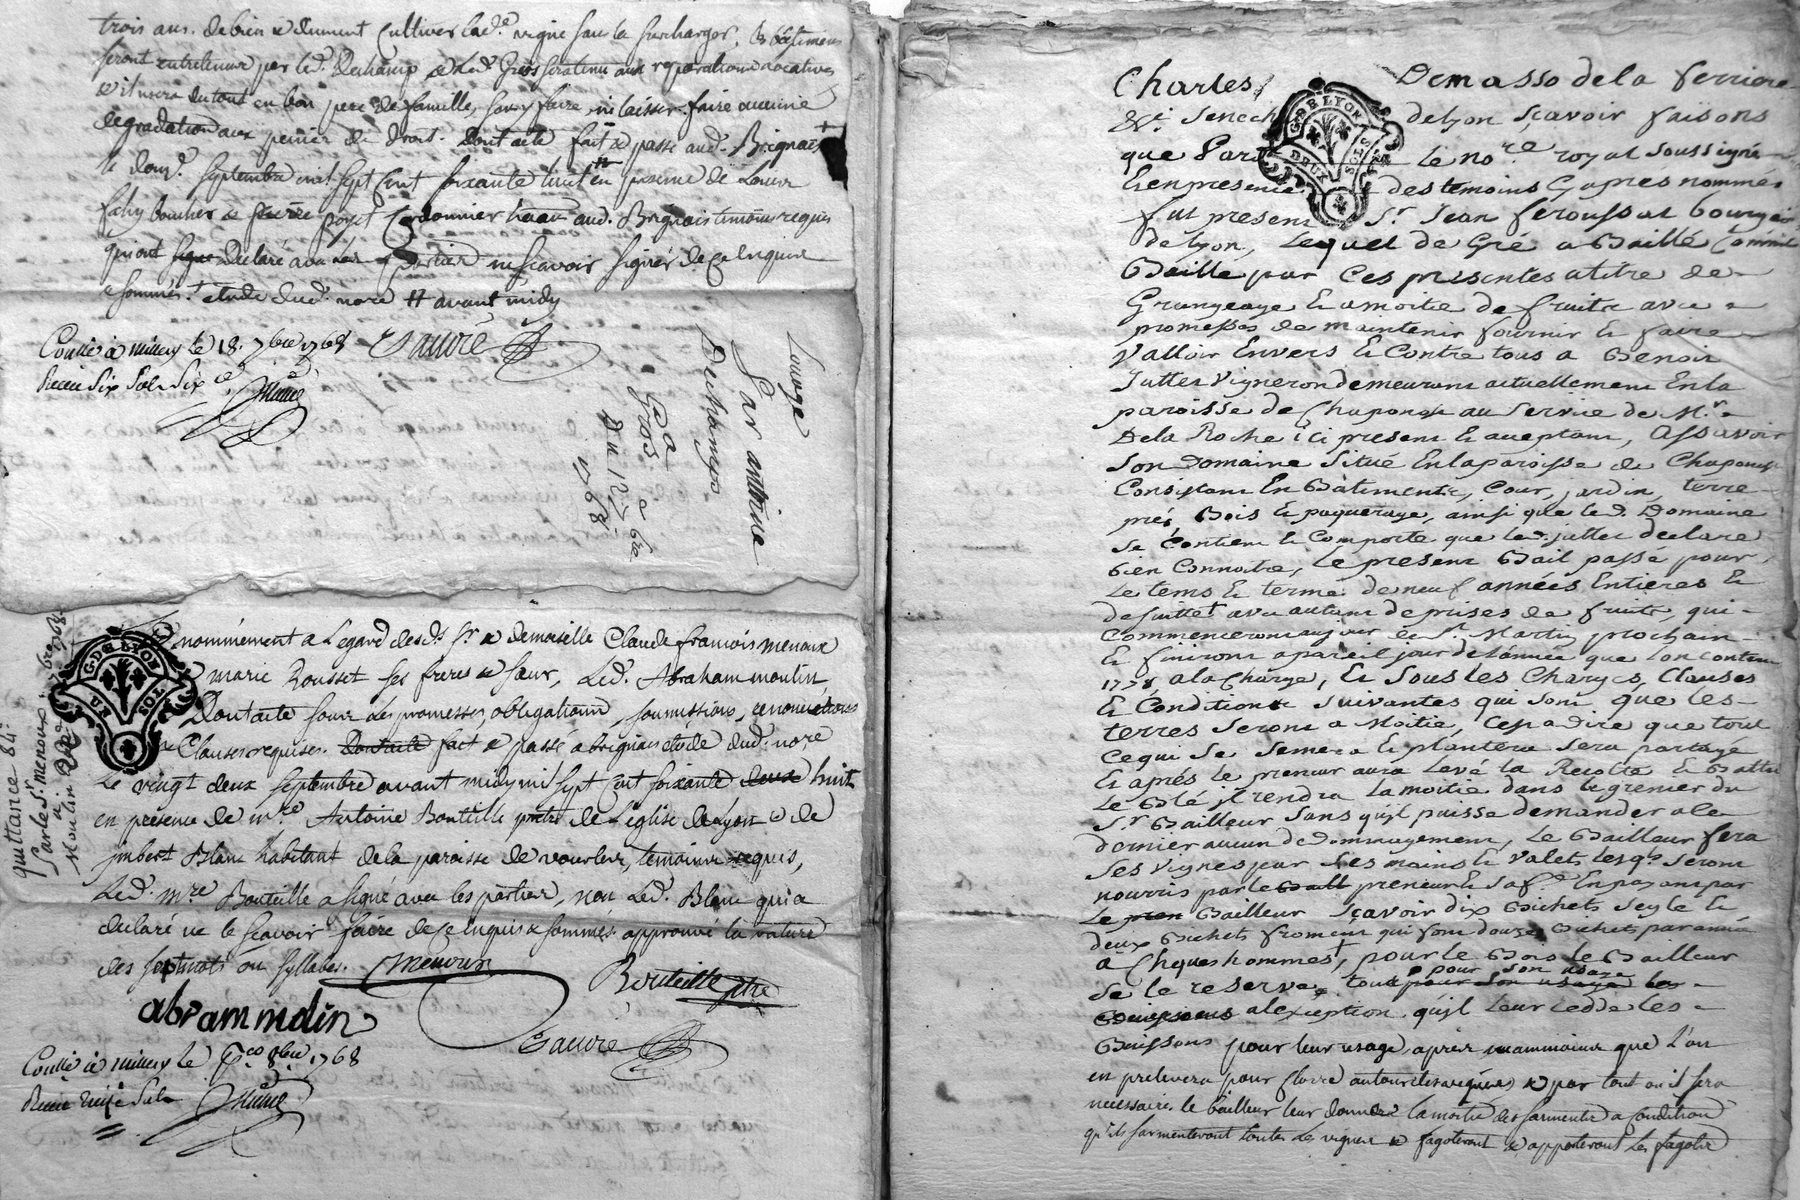 trois ans. de bien & dument Cultiver lade. vigne sans la surcharger. les bâtimens
seront entretenus par led. Dechamp & led. Gros sera tenu aux reparations locatives
& il usera du tout en bon pere de famille, sans y faire, ni laisser faire aucune
degradation aux peines de droit. Dont acte fait & passé aud. Brignais
le douze septembre mil sept cent soixante huit en presence de Louis
boucher & pierre poyet Cordonnier aud. Brignais temoins requis
qui ont signé Declaré avec les parties ne scavoir signer de ce enquis
& sommés. etude dud. nore # avant midy
Conllé à millery le 18. 7bre 1768 Sauvré
Receu Six Sols Six
Louage
Par antoine
Dechamps
a
Gros
Du 12 7bre
1768
nommément a Legard desds. Sr. & demoiselle Claude francois menoux
marie Rousset ses freres & soeur, Led. Abraham moulin
Dont acte sous les promesses, obligations, soumissions, renonciations
Clauses requises. Dont acte fait & passé a Brignais etude dud. nore
Le vingt deux septembre avant midy mil sept cent soixante deux huit
en presence de mre Antoine Bouteille ptre de L'eglise de Lyon & de
imbert Blanc habitant de la paroisse de vourles, temoins requis,
Led. mre Bouteille a signé avec les parties, non Led. Blanc qui a
declaré ne le scavoir faire de ce enquis & sommés. approuvé la rature
des sept mots ou syllabes. Menoux
Bouteille ptre
abram molin
Sauvré
Conllé à millery le 8bre 1768
Receu Sols
quittance 84
Par le Sr. menoux
a
Moulin
G. DE LYON
G. DE LYON
DEUX SOLS
Charles Demasso de la ferriere
Sénech de Lyon sçavoir faisons
que Pardt le nore royal soussigné
Et en presence des temoins Cy apres nommés
fut present Sr. Jean feroussat bourgeois
de Lyon, Lequel de Gré a Baillé Comme
Baille par Ces presentes a titre de
Grangeage Et a moitié de fruits avec
promesses de maintenir fournir Et faire
Valloir Envers Et Contre tous a Benoit
Juttet Vigneron demeurant actuellement En la
paroisse de Chaponost au service de Mr.
De la Roche ici present Et aceptant, Assavoir
Son Domaine Situé En la paroisse de Chaponost
Consistant En Bâtiments, Cour, jardin, terre
prés, Bois Et paquerage, ainsi que led. Domaine
se Contient Et Comporte que led. juttet declare
bien Connoitre, le present Bail passé pour
Le tems Et terme de neuf années Entieres Et
de suitte avec autant de prises de fruits, qui
Commenceront au jour de St. Martin prochain
Et finiront a pareil jour de l'année que l'on contera
1778 a la Charge, Et sous les Charges, Clauses
Et Conditions suivantes qui sont que les
terres seront a Moitié, C'est a dire que tout
Ce qui se semera Et plantera sera partagé
Et aprés le preneur aura levé la Recolte Et Battu
Le Blé il rendra la moitié dans le grenier du
Sr. Bailleur sans qu'il puisse demander a ce
dernier aucun dedommagement, Le Bailleur fera
ses vignes par ses mains Et Valets, lesqs seront
nourris par le Baill preneur Et sa fe En payant par
Le pren Bailleur Sçavoir dix Bichets seigle Et
deux Bichets froment qui font douze Bichets par année
a Chques hommes, pour le Bois le Bailleur
pour son usage
se le reserve, tout pour son usage
a l'exception qu'il leur cedde les
Buissons pour leur usage, apres neammoins que L'on
en prelevera pour Clorre autour des vignes & par tout ou il sera
necessaire. le bailleur leur donnera la moitié des sarments a Condition
qu'ils sarmenteront toutes les vignes & fagoteront & apporteront les fagots